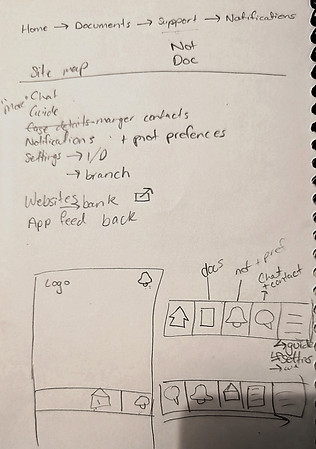 Home → Documents → Support → Notifications
Not
Doc
Site map
more • Chat
Guide
Case details-manger contacts
Notifications + pnot prefences
Settings → I/O
→ branch
Websites → bank
App feed back
Logo
docs
not + pref
Chat
+ contact
→ guide
→ settins